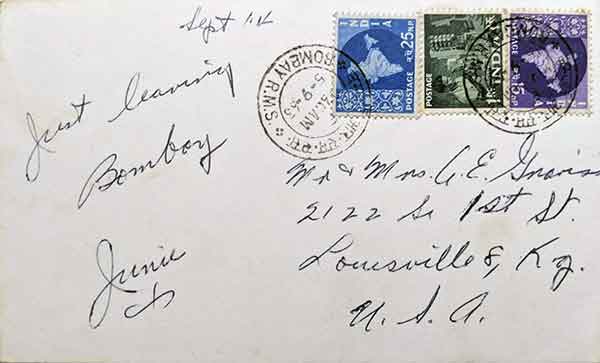 Sept
Just leaving
Bombay
Junie
Mr & Mrs. G. E.
2122 So 1st St.
Louisville 8, Ky.
U. S. A.
INDIA
25 N.P.
POSTAGE
INDIA
1R
POSTAGE
INDIA
15 N.P.
POSTAGE
BOMBAY R.M.S.
5-9-63